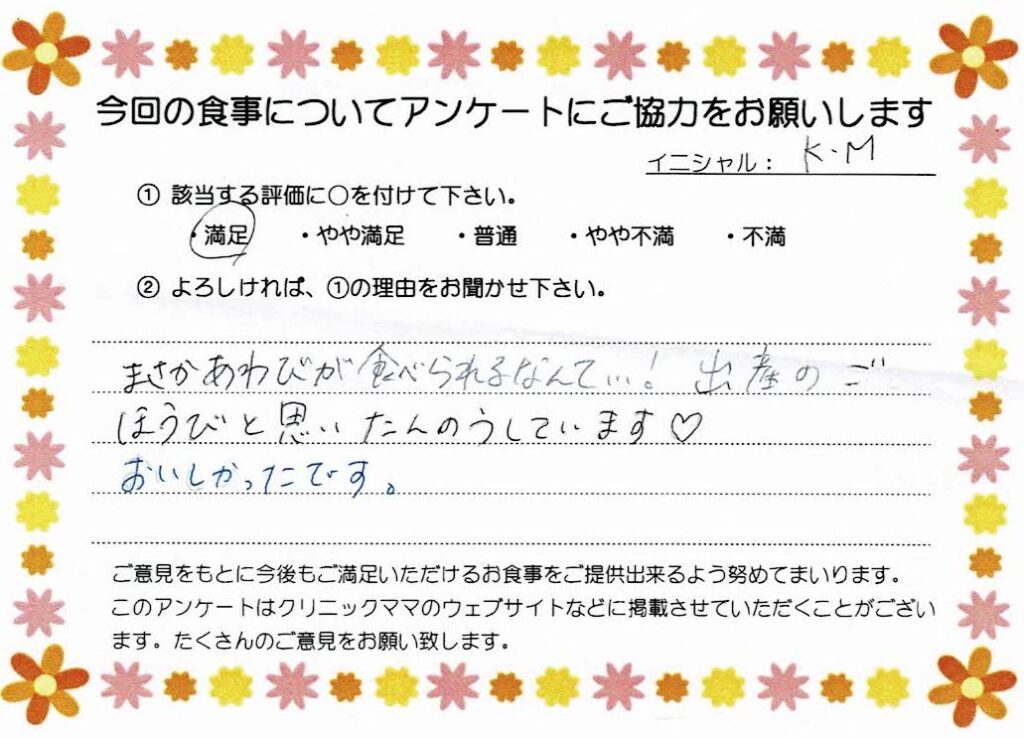 今回の食事についてアンケートにご協力をお願いします
イニシャル： K・M
① 該当する評価に○を付けて下さい。
・満足 ・やや満足 ・普通 ・やや不満 ・不満
② よろしければ、①の理由をお聞かせ下さい。
まさかあわびが食べられるなんて…! 出産のご
ほうびと思いたんのうしています♡
おいしかったです。
ご意見をもとに今後もご満足いただけるお食事をご提供出来るよう努めてまいります。
このアンケートはクリニックママのウェブサイトなどに掲載させていただくことがござい
ます。たくさんのご意見をお願い致します。